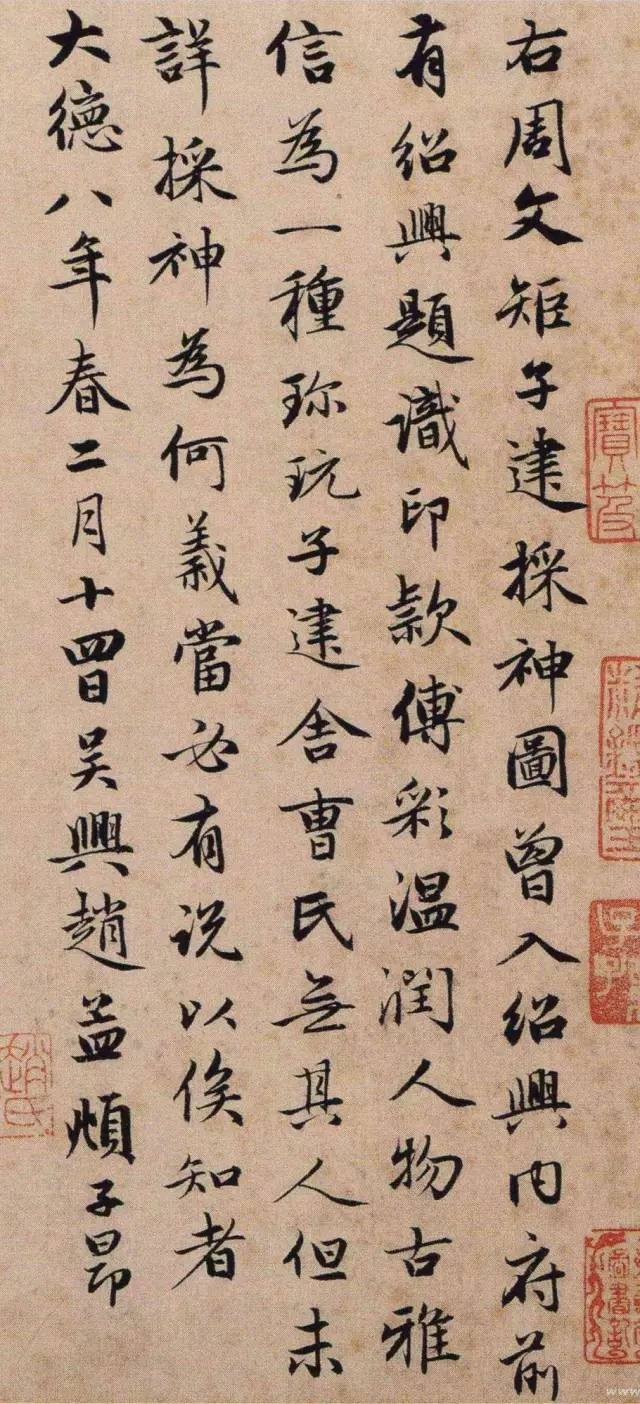 右周文矩子建採神圖曾入紹興内府前
有紹興題識印款傅彩温潤人物古雅
信為一種珎玩子建舍曹氏無其人但未
詳採神為何義當必有説以俟知者
大德八年春二月十四日吴興趙孟頫子昂
趙氏
www